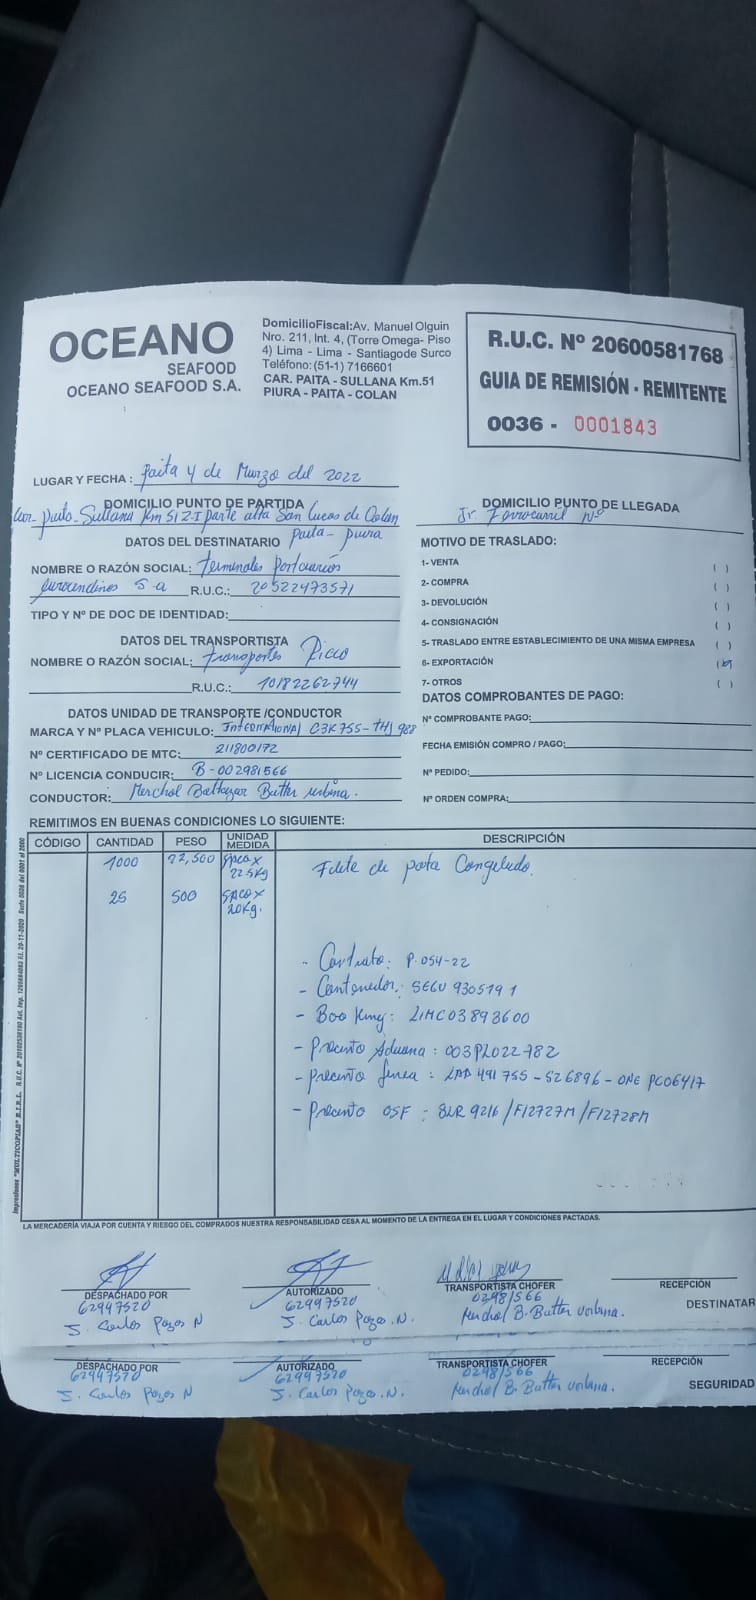 OCEANO
SEAFOOD
OCEANO SEAFOOD S.A.
DomicilioFiscal:Av. Manuel Olguin
Nro. 211, Int. 4, (Torre Omega- Piso
4) Lima - Lima - Santiagode Surco
Teléfono:(51-1) 7166601
CAR. PAITA - SULLANA Km.51
PIURA - PAITA - COLAN
R.U.C. Nº 20600581768
GUIA DE REMISIÓN - REMITENTE
0036 - 0001843
LUGAR Y FECHA : Paita 4 de Marzo del 2022
DOMICILIO PUNTO DE PARTIDA
Car. Paita-Sullana Km 51 Z-I parte alta San Lucas de Colan
Paita - Piura
DOMICILIO PUNTO DE LLEGADA
Jr Ferrocarril Nº
DATOS DEL DESTINATARIO
NOMBRE O RAZÓN SOCIAL: Terminales Portuarios
Euroandinos S-a R.U.C.: 20522473571
TIPO Y Nº DE DOC DE IDENTIDAD:
DATOS DEL TRANSPORTISTA
NOMBRE O RAZÓN SOCIAL: Transportes Ricco
R.U.C.: 10182262744
DATOS UNIDAD DE TRANSPORTE /CONDUCTOR
MARCA Y Nº PLACA VEHICULO: International C3K755-THJ988
Nº CERTIFICADO DE MTC: 211800172
Nº LICENCIA CONDUCIR: B-002981566
CONDUCTOR: Merchol Baltazar Butter Urbina.
MOTIVO DE TRASLADO:
1- VENTA ( )
2- COMPRA ( )
3- DEVOLUCIÓN ( )
4- CONSIGNACIÓN ( )
5- TRASLADO ENTRE ESTABLECIMIENTO DE UNA MISMA EMPRESA ( )
6- EXPORTACIÓN ( )
7- OTROS ( )
DATOS COMPROBANTES DE PAGO:
Nº COMPROBANTE PAGO:
FECHA EMISIÓN COMPRO / PAGO:
Nº PEDIDO:
Nº ORDEN COMPRA:
REMITIMOS EN BUENAS CONDICIONES LO SIGUIENTE:
CÓDIGO CANTIDAD PESO UNIDAD MEDIDA DESCRIPCIÓN
1000 22,500 Saco x 22.5Kg Filete de pota Congelado.
25 500 SACO x 20Kg.
- Contrato: P.054-22
- Contenedor: SEGU 930519 1
- Boo King: LIMC03893600
- Precinto Aduana : 003PL022782
- Precinto Linea : LAD 491755-526896-ONE PC06417
- Precinto OSF : BLR 9216 /F12727M /F12728M
LA MERCADERÍA VIAJA POR CUENTA Y RIESGO DEL COMPRADOS NUESTRA RESPONSABILIDAD CESA AL MOMENTO DE LA ENTREGA EN EL LUGAR Y CONDICIONES PACTADAS.
DESPACHADO POR AUTORIZADO TRANSPORTISTA CHOFER RECEPCIÓN
62997520 62997520 02981566 DESTINATAR
J. Carlos Pozos N J. Carlos Pozos .N. Merchol B. Butter Urbina.
DESPACHADO POR AUTORIZADO TRANSPORTISTA CHOFER RECEPCIÓN
62997520 62997520 02981566 SEGURIDAD
J. Carlos Pozos N J. Carlos Pozos .N. Merchol B. Butter Urbina.